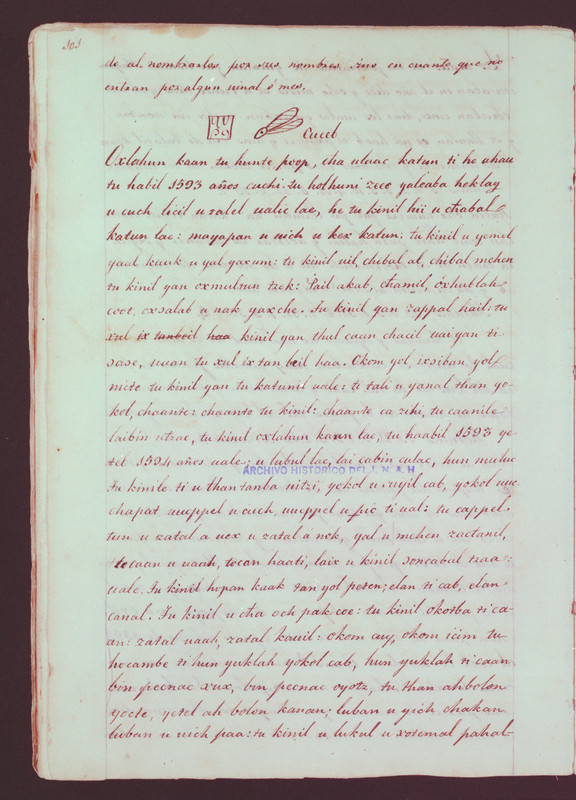 101
de al nombrarlos por sus nombres, sino en cuanto que no
entran por algun uinal ó mes.
Cuceb
Oxlahun kaan tu hunte poop, cha uluac katun ti he ahau
tu habil 1593 años cuchi: tu holhuni zeec yalcaba heklay
u cuch licil u talel ualic lae, he tu kinil hii u chabal
katun lae: mayapan u uich u kex katun: tu kinil u yemel
yaal kauk u yal yaxum: tu kinil uil, chibal al, chibal mehen
tu kinil yan oxmultun tzek: Pail akab, chamil, óxhublah
coot, oxsalab u nak yaxche. Tu kinil yan zappal hail: tu
xul ix tanbeil haa kinil yan thul caan chacil uaiyan ti
sase, uaan tu xul ix tan beil haa. Okom yol, ixsiban, yol
nicte tu kinil yan tu katunil uale: ti tali u yanal than yo-
kol, chaante: chaante tu kinil: chaante ca zihi, tu caanile
laibin utzac, tu kinil oxlahun kaan lae, tu haabil 1593 ye-
tel 1594 años uale: u lubul lae, lai cabin culac, hun muluc
ARCHIVO HISTORICO DEL I. N. A. H.
Tu kinile ti u than tanba uitzi, yokol u uyil cab, yokol uuc
chapat uuppel u cuch, uuppel u ual: tu cappel
tun u zatal a uex u zatal a nok, yal u mehen zactenil,
tocaan u uaah, tocan haati, laix u kinil soncabal tzaa:
uale. Tu kinil hopan kaak tan yol peten; elan ti cab, elan
canal. Tu kinil u cha och pak coe: tu kinil okotba ti ca-
an: zatal uaah, zatal kauil: okom cuy, okom icim tu
hocambe ti hun yuklah yokol cab, hun yuklah ti caan
bin pecnac xux, bin pecnac oyote, tu than ahbolon
yocte, yetel ah bolon kanan; luban u yich chakan
luban u uich paa: tu kinil u lukul u xotemal pahal-